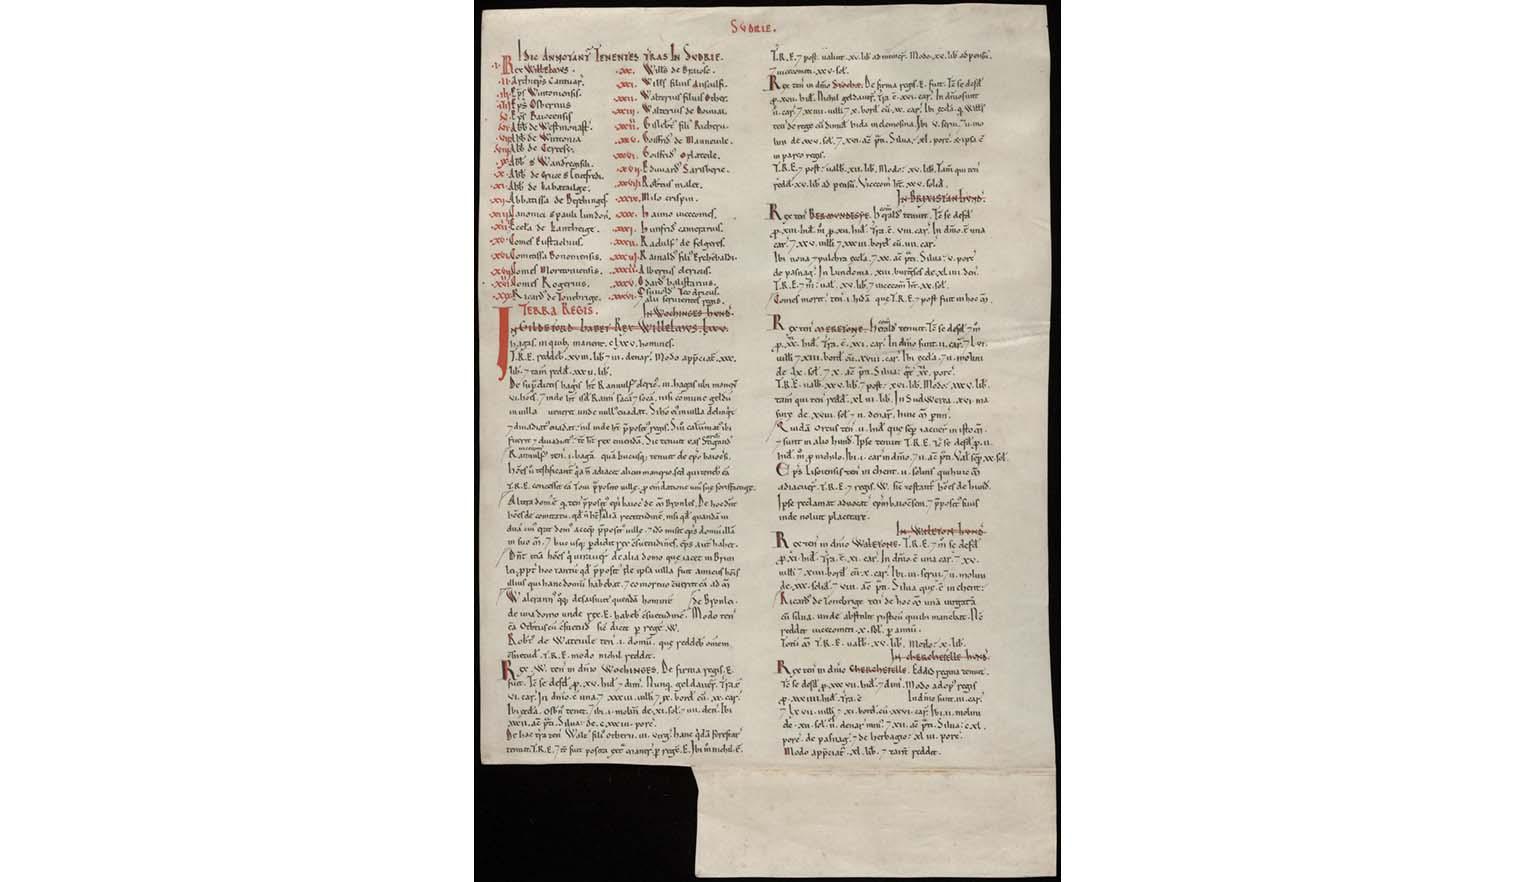 SVDRIE.
HIC ANNOTANT TENENTES TRAS IN SVDRIE.
.I. Rex Willelmus.
.II. Archieps Cantuar.
.III. Eps Wintoniensis.
.IIII. Eps Osbernus
.V. Eps Baiocensis
.VI. Abb de Westmonast.
.VII. Abb de Wintonia
.VIII. Abb de Certesy.
.IX. Abb S Wandregisili.
.X. Abb de Cruce S Leutfredi.
.XI. Abb de Labatailge.
.XII. Abbatissa de Berchinges
.XIII. Canonici S pauli Lundon.
.XIIII. Eccla de Lantheige.
.XV. Comes Eustachius.
.XVI. Comitissa Bononiensis.
.XVII. Comes Moritoniensis.
.XVIII. Comes Rogerius.
.XIX. Ricard de Tonebrige.
.XX. Wills de Braiose.
.XXI. Wills filius Ansculfi.
.XXII. Walterius filius Other.
.XXIII. Walterius de Dowai.
.XXIIII. Gislebt fili Richerii.
.XXV. Goisfrid de Manneuile.
.XXVI. Goisfrid Orlateile.
.XXVII. Eduuard Sarisberie.
.XXVIII. Robtus malet.
.XXIX. Milo crispin.
.XXX. Haimo uicecomes.
.XXXI. Hunfrid camerarius.
.XXXII. Radulf de felgeres.
.XXXIII. Rainald fili Erchebaldi.
.XXXIIII. Albertus clericus.
.XXXV. Odard balistarius.
.XXXVI. Osuuold Teodricus.
alii seruientes regis.
TERRA REGIS. In Wochinges Hvnd.
In Gildeford habet Rex Willelmus .LXXV.
hagas. in quib manent .CLXXV. homines.
T.R.E. reddeb .XVIII. lib 7 III. denar. Modo appciat .XXX.
lib. 7 tam redd .XXXII. lib.
De supdictis hagis ht Rannulf cleric .III. hagas ubi manent
VI. hoes. 7 inde ht isd Rann saca 7 soca. nisi comune geldu
in uilla uenerit unde null euadat. Si ho ei in uilla delinqt
7 diuadiat euadat. nil inde ht pposit regis. Si u calumniat ibi
fuerit 7 diuadiat. tc ht rex emenda. Sic tenuit eas Stigand
Rannulf ten .I. haga. qua hucusq tenuit de epo baiocsi.
T.R.E. concessit ea Toui pposito uille. p emdatione uni sue forisfacture.
Altera dom e. q ten pposit epi baioc de m Bronlei. De hoc dnt
hoes de comitatu. qd n ht alia rectitudine. nisi qd quanda ui
dua cui erat dom accep pposit uille. 7 ido misit eps domu illa
in suo m. 7 huc usq pdidit rex csuetudines. eps aut habet.
Dnt etia hoes q iurauer de alia domo que iacet in Bron
lei. ppt hoc tantu qd pposit de ipsa uilla fuit amicus hois
illius qui hanc domu habebat. 7 eo mortuo cuertit ea ad m
Walerann qq desaisiuit quenda homine de Bronlei.
de una domo unde rex .E. habeb csuetudine. Modo ten
ea Otbtus cu csuetud sic dicit p rege .W.
Robt de Wateuile ten .I. domu. que reddeb omem
csuetud. T.R.E. modo nichil reddit.
Rex .W. ten in dnio WOCHINGES. De firma regis .E.
fuit. Tc se defd p .XV. hid 7 dim. Nunq geldauer. Tra e
VI. car. In dnio. e una. 7 XXXIII. uilli 7 IX. bord cu .XX. car.
Ibi eccla. Osbn tenet. 7 ibi .I. molin de XI. sol 7 IIII. den. Ibi
XXXII. ac pti. Silua. de .C.XXXIII. porc.
De hac tra ten Walt fili otherii .III. uirg. hanc qda forestar
tenuit T.R.E. 7 tc fuit posita ext maner p rege .E. Ibi m nichil e.
T.R.E. 7 post. ualuit .XV. lib ad numer. Modo .XV. lib ad pensu.
7 uicecomiti .XXV. sol.
Rex ten in dnio Stoche. De firma regis .E. fuit. Tc se defd
p .XVII. hid. Nichil geldauer. Tra e .XVI. car. In dnio sunt
II. car. 7 XXIIII. uilli 7 X. bord cu .XX. car. Ibi eccla. q Wills
ten de rege cu dimid hida in elemosina. Ibi .V. serui. 7 II. mo
lini de .XXV. sol. 7 XVI. ac pti. Silua .XL. porc. 7 ipsa e
in parco regis.
T.R.E. 7 post. ualb .XII. lib. Modo .XV. lib. Tam qui ten
redd .XV. lib ad pensu. Vicecom ht .XXV. solid.
In Brixistan Hvnd.
Rex ten BERMVNDESYE. Herald com tenuit. Tc se defd
p .XIII. hid. m p .XII. hid. Tra .e. VIII. car. In dnio .e una
car. 7 XXV. uilli 7 XXXIII. bord cu .IIII. car.
Ibi noua 7 pulchra eccla. 7 XX. ac pti. Silua .V. porc
de pasnag. In Lundonia .XIII. burgses de .XLIIII. den.
T.R.E. 7 m. ual .XV. lib. 7 uicecom ht .XX. sol.
Comes morit ten .I. hida que T.R.E. 7 post fuit in hoc m.
Rex ten MERETONE. Herald com tenuit. Tc se defd 7 m
p .XX. hid. Tra .e. XXI. car. In dnio sunt .II. car. 7 LVI.
uilli 7 XIII. bord cu .XVIII. car. Ibi eccla. 7 II. molini
de .LX. sol. 7 X. ac pti. Silua. qt XX. porc.
T.R.E. ualb .XXV. lib. 7 post .XVI. lib. Modo .XXXV. lib.
tam qui ten redd .XLIII. lib. In Sudwerca .XVI. ma
sure de .XVIII. sol 7 II. denar. huic m ptin.
Quida Orcus ten .II. hid que sep iacuer in isto m.
7 sunt in alio hund. Ipse tenuit T.R.E. Tc se defd p .II.
hid. m p nichilo. Ibi .I. car in dnio. 7 II. ac pti. Val sep .XX. sol.
Eps Lisoiensis ten in chent .II. solins qui huic m
adiacuer T.R.E. 7 regis .W. sic testant hoes de hund.
Ipse reclamat aduocat epm baiocensem. 7 pposit eius
inde noluit placitare.
In Waleton Hvnd.
Rex ten in dnio WALETONE. T.R.E. 7 m se defd
p .XI. hid. Tra .e. XI. car. In dnio .e una car. 7 XV.
uilli 7 XIIII. bord cu .X. car. Ibi .III. serui. 7 II. molini
de .XXX. solid. 7 VIII. ac pti. Silua que .e in chent.
Ricard de Tonebrige ten de hoc m una uirgata
cu silua. unde abstulit rusticu qui ibi manebat. Nc
reddit uicecomiti .X. sol p annu.
Totu m T.R.E. ualb .XV. lib. Modo .X. lib.
In Cherchefelle Hvnd.
Rex ten in dnio CHERCHEFELLE. Eddid regina tenuit.
Tc se defd p .XXXVII. hid. 7 dimi. Modo ad op regis
p .XXXIIII. hid. Tra .e In dnio sunt .III. car.
7 LXVII. uilli 7 XI. bord cu .XXVI. car. Ibi .II. molini
de .XII. sol .II. denar min. 7 XII. ac pti. Silua .CXL.
porc. de pasnag. 7 de herbagio .XLIII. porc.
Modo appciat .XL. lib. 7 tant reddit.